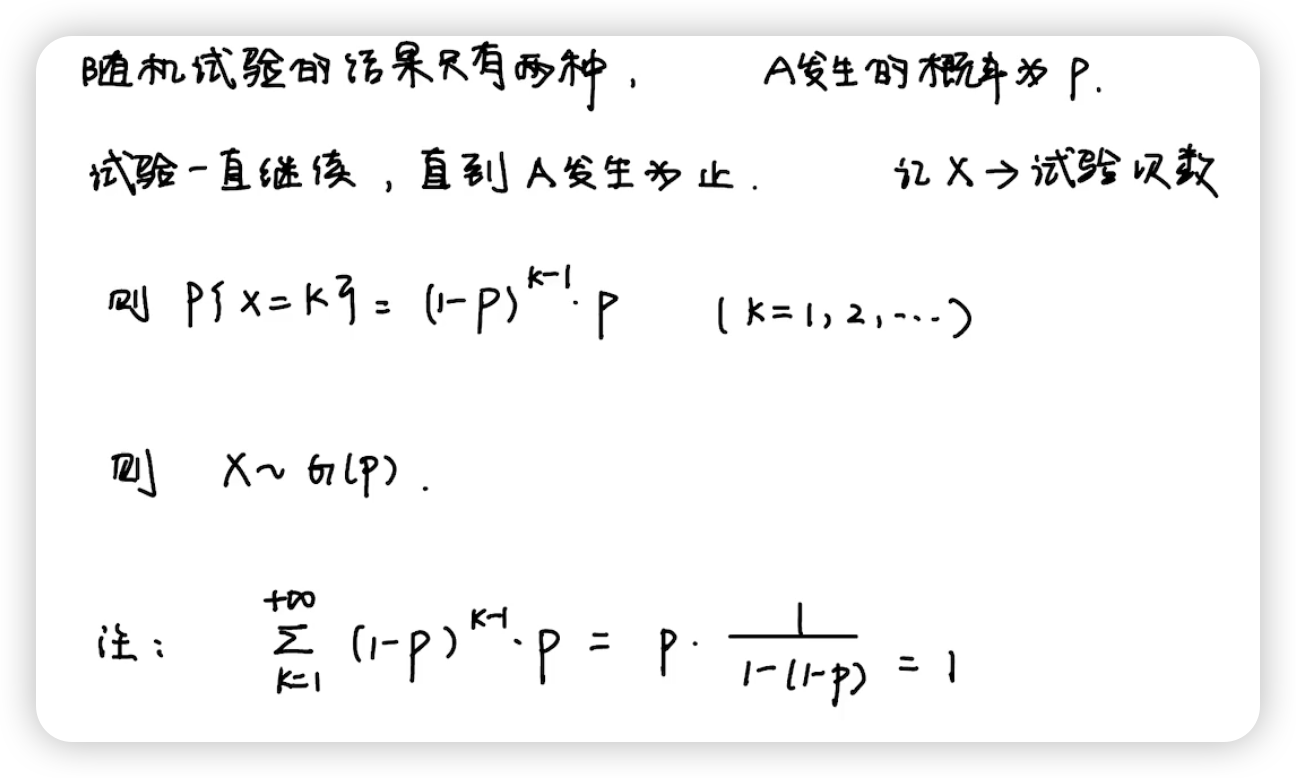 随机试验的结果只有两种， A发生的概率为 P.
试验一直继续，直到A发生为止. 记 X → 试验次数
则 P{X=K} = (1-P)^{K-1}·P (K=1,2,...)
则 X~G(P).
注： \sum_{K=1}^{+∞} (1-P)^{K-1}·P = P·\frac{1}{1-(1-P)} = 1